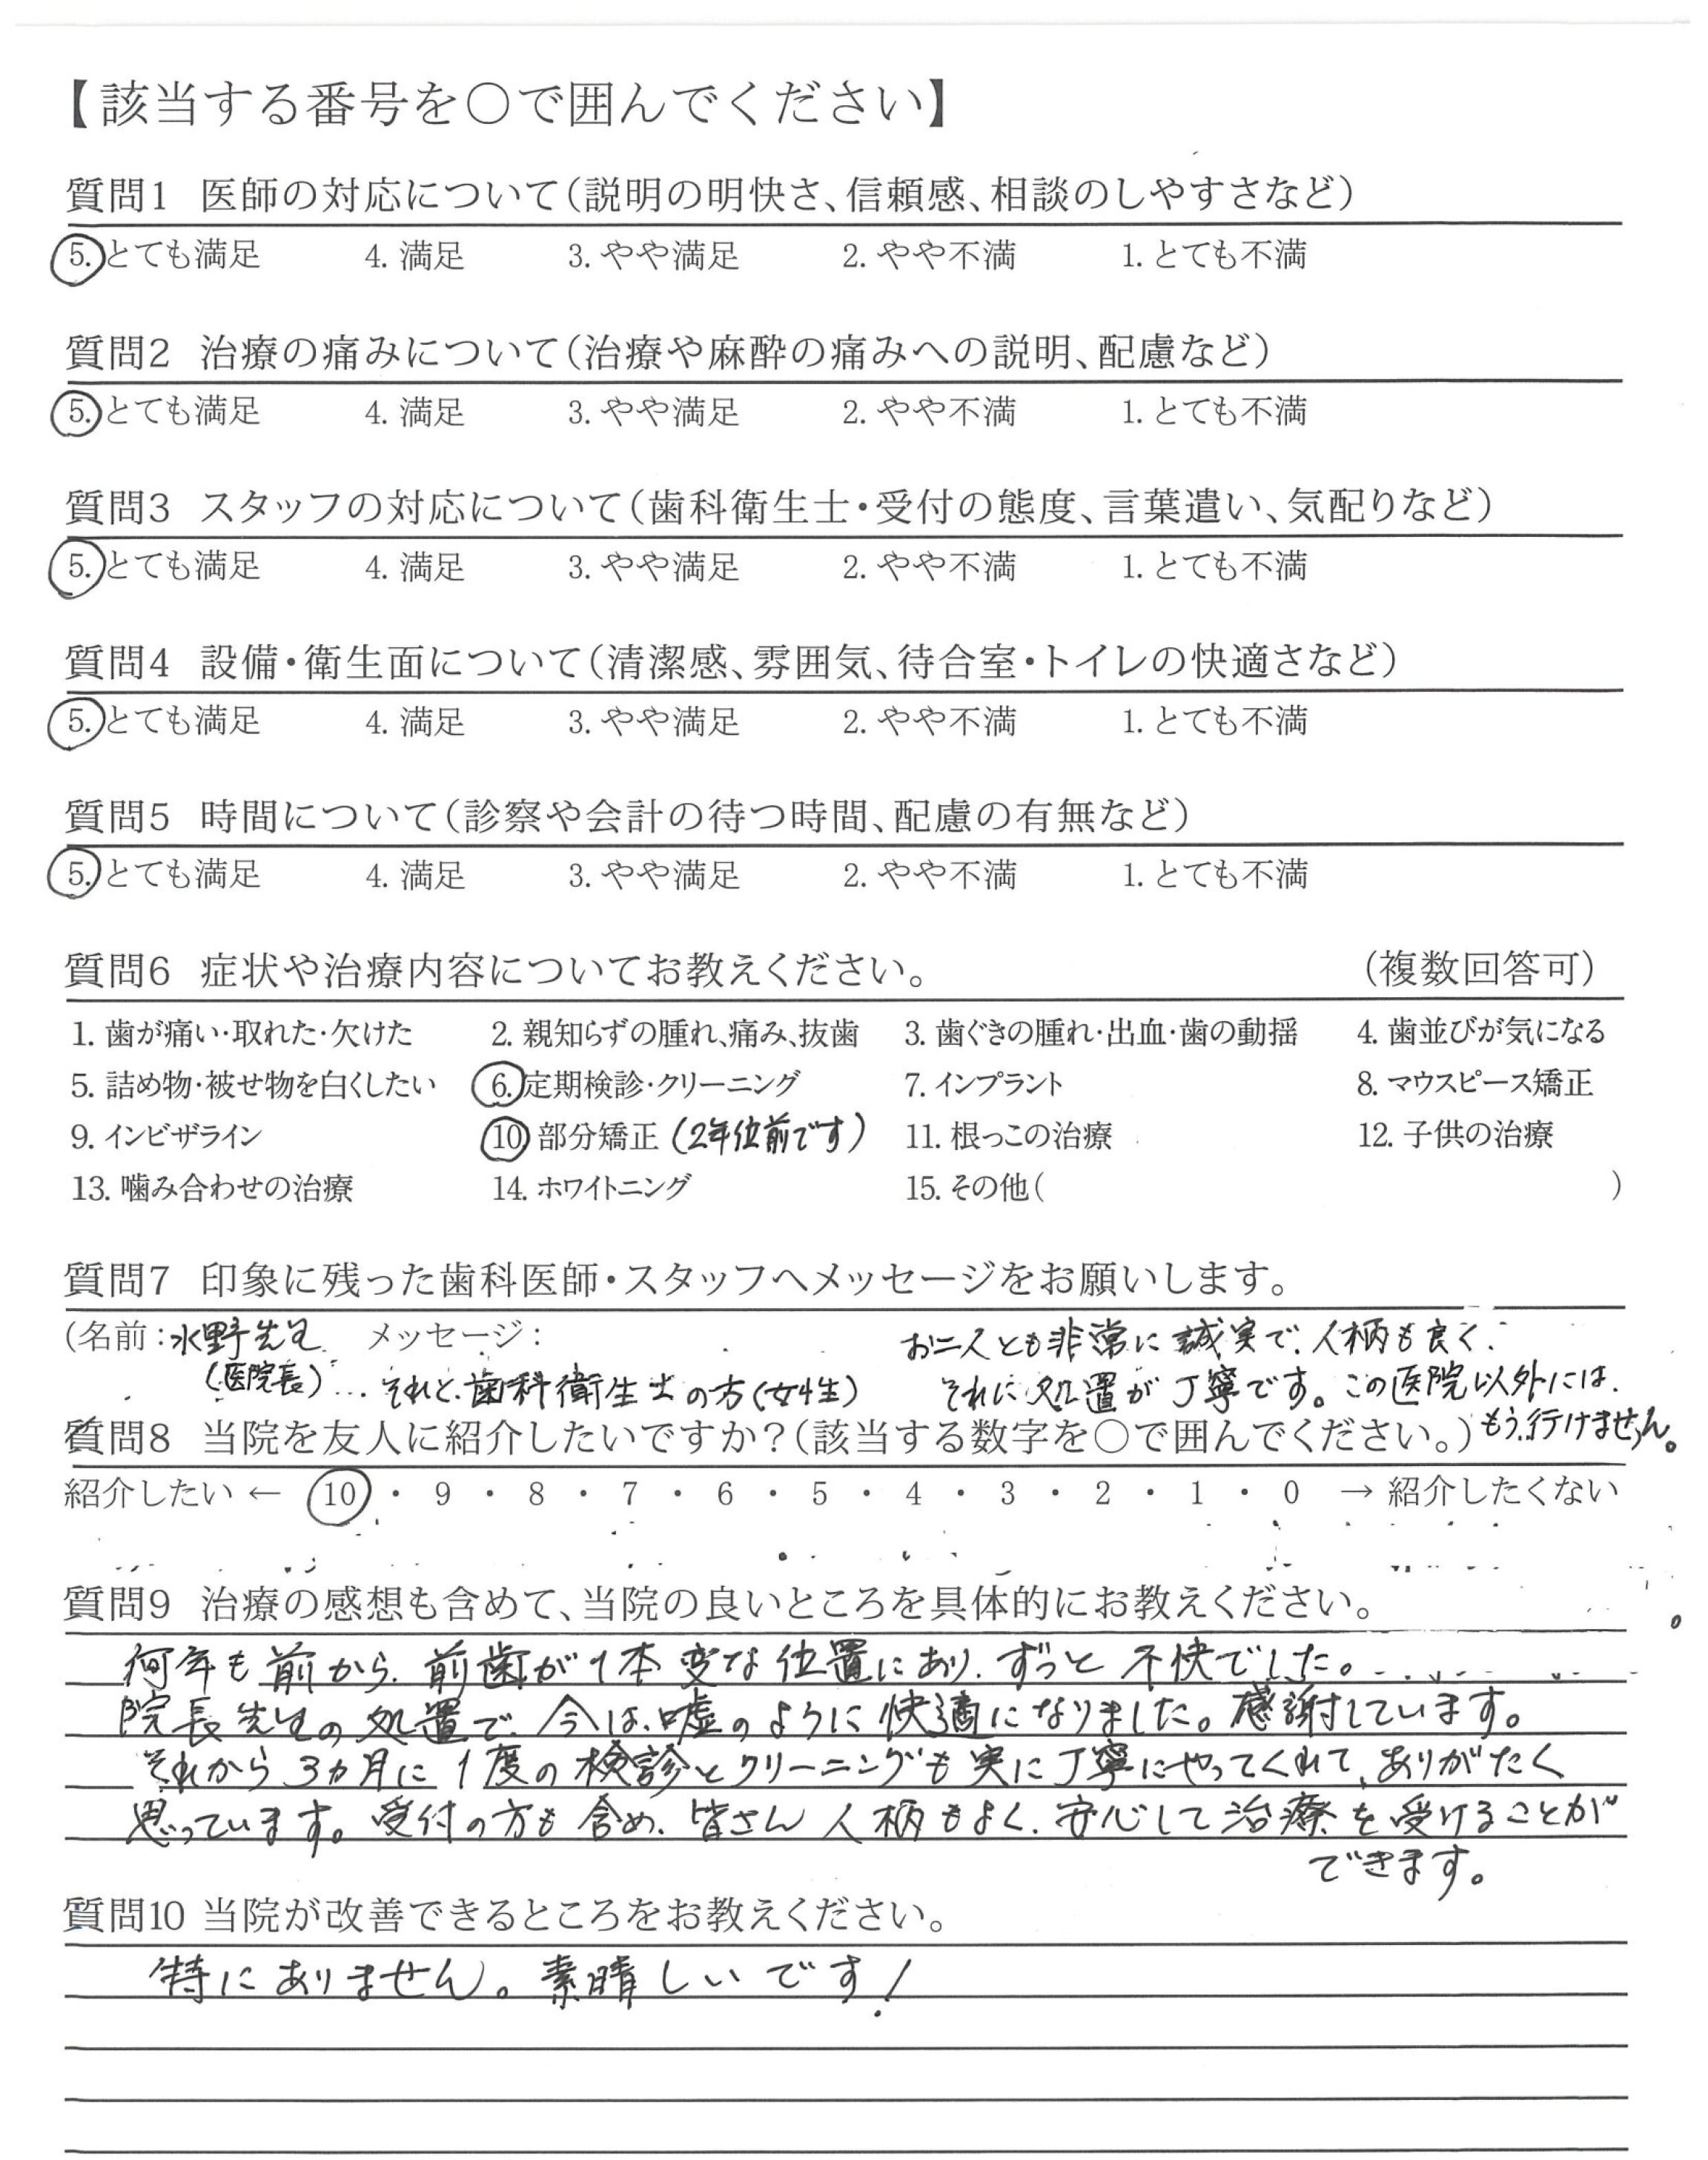 【該当する番号を○で囲んでください】
質問1 医師の対応について(説明の明快さ、信頼感、相談のしやすさなど)
5. とても満足 4. 満足 3. やや満足 2. やや不満 1. とても不満
質問2 治療の痛みについて(治療や麻酔の痛みへの説明、配慮など)
5. とても満足 4. 満足 3. やや満足 2. やや不満 1. とても不満
質問3 スタッフの対応について(歯科衛生士・受付の態度、言葉遣い、気配りなど)
5. とても満足 4. 満足 3. やや満足 2. やや不満 1. とても不満
質問4 設備・衛生面について(清潔感、雰囲気、待合室・トイレの快適さなど)
5. とても満足 4. 満足 3. やや満足 2. やや不満 1. とても不満
質問5 時間について(診察や会計の待つ時間、配慮の有無など)
5. とても満足 4. 満足 3. やや満足 2. やや不満 1. とても不満
質問6 症状や治療内容についてお教えください。 (複数回答可)
1. 歯が痛い・取れた・欠けた 2. 親知らずの腫れ、痛み、抜歯 3. 歯ぐきの腫れ・出血・歯の動揺 4. 歯並びが気になる
5. 詰め物・被せ物を白くしたい 6. 定期検診・クリーニング 7. インプラント 8. マウスピース矯正
9. インビザライン 10 部分矯正 (2年位前です) 11. 根っこの治療 12. 子供の治療
13. 噛み合わせの治療 14. ホワイトニング 15. その他( )
質問7 印象に残った歯科医師・スタッフへメッセージをお願いします。
(名前:水野先生 メッセージ: お二人とも非常に誠実で、人柄も良く、
(医院長)… それと、歯科衛生士の方(女性) それに処置が丁寧です。この医院以外には、
もう、行けません。
質問8 当院を友人に紹介したいですか?(該当する数字を○で囲んでください。)
紹介したい ← 10 ・ 9 ・ 8 ・ 7 ・ 6 ・ 5 ・ 4 ・ 3 ・ 2 ・ 1 ・ 0 → 紹介したくない
質問9 治療の感想も含めて、当院の良いところを具体的にお教えください。
何年も前から、前歯が1本変な位置にあり、ずっと不快でした。
院長先生の処置で、今は、嘘のように快適になりました。感謝しています。
それから3カ月に1度の検診とクリーニングも実に丁寧にやってくれて、ありがたく
思っています。受付の方も含め、皆さん人柄もよく、安心して治療を受けることが
できます。
質問10 当院が改善できるところをお教えください。
特にありません。素晴しいです!